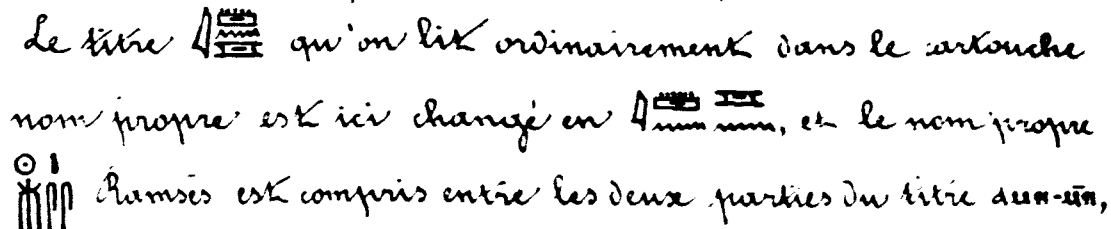 Le titre 𓇋𓏠𓈖𓈘 qu'on lit ordinairement dans le cartouche
nom propre est ici changé en 𓇋𓏠𓈖𓈘𓈖, et le nom propre
𓇳𓏤𓄟𓋴𓋴 Ramsès est compris entre les deux parties du titre